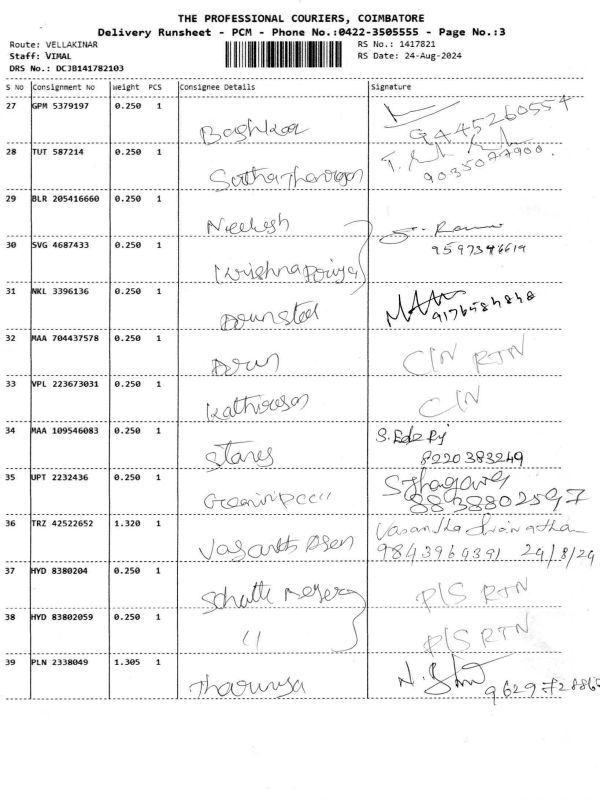 THE PROFESSIONAL COURIERS, COIMBATORE
Delivery Runsheet - PCM - Phone No.:0422-3505555 - Page No.:3
Route: VELLAKINAR RS No.: 1417821
Staff: VIMAL RS Date: 24-Aug-2024
DRS No.: DCJB141782103
S No Consignment No Weight PCS Consignee Details Signature
27 GPM 5379197 0.250 1 9445260554
28 TUT 587214 0.250 1
29 BLR 205416660 0.250 1 Neelesh
30 SVG 4687433 0.250 1 Krishna Priya
31 NKL 3396136 0.250 1
32 MAA 704437578 0.250 1 Arun C/N RTN
33 VPL 223673031 0.250 1 Kathiresan C/N
34 MAA 109546083 0.250 1 Stanes 8220383249
35 UPT 2232436 0.250 1 8838802597
36 TRZ 42522652 1.320 1 Vasantha 9843969391 24/8/24
37 HYD 8380204 0.250 1 P/S RTN
38 HYD 83802059 0.250 1 11 P/S RTN
39 PLN 2338049 1.305 1 Tharunya